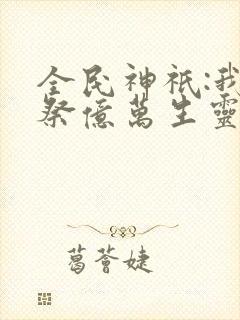 全民神祇:我
祭億萬生靈
葛薈婕